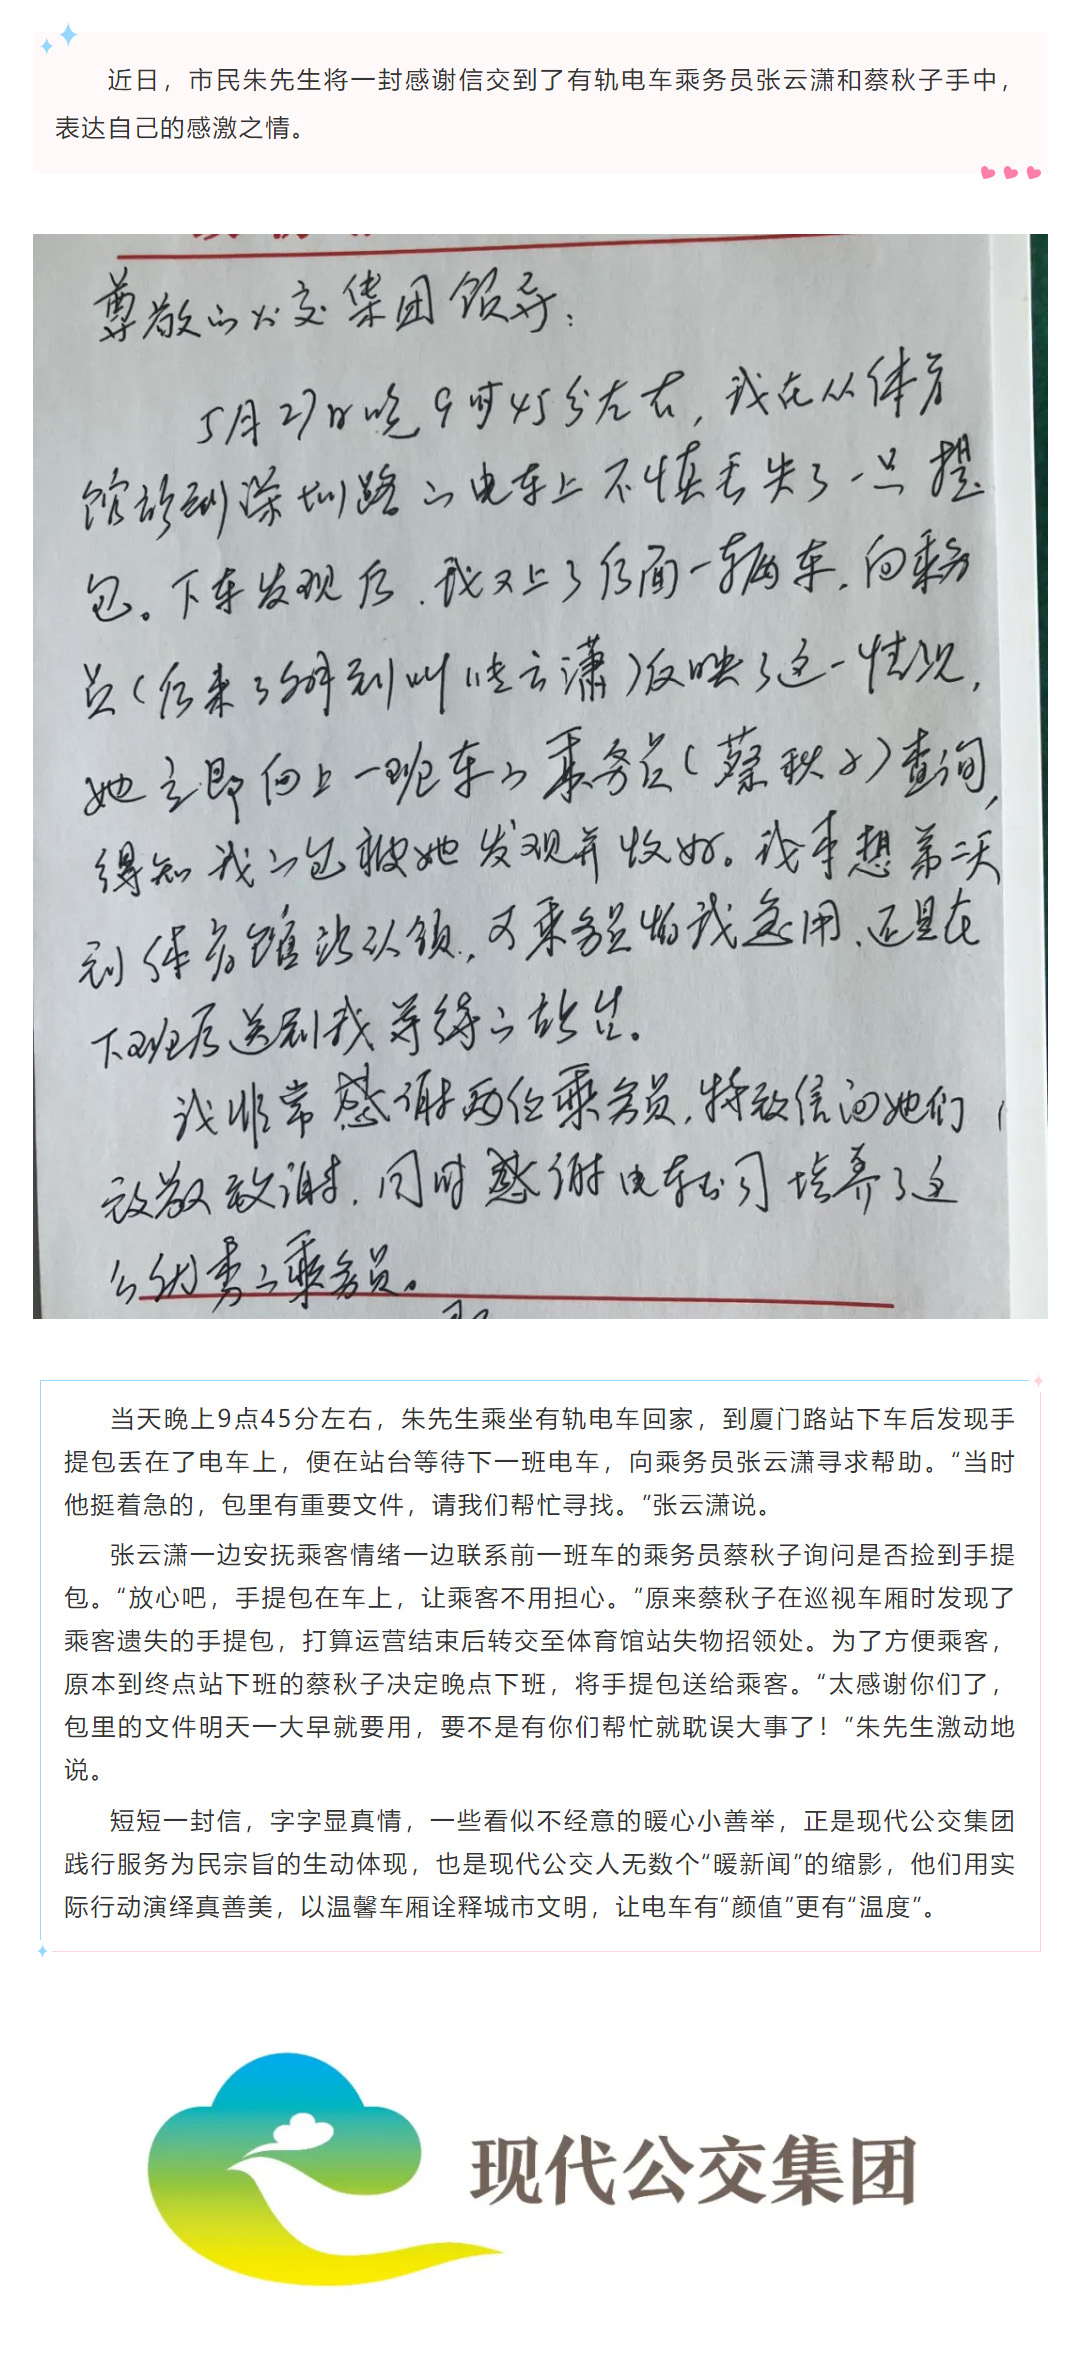 近日，市民朱先生将一封感谢信交到了有轨电车乘务员张云潇和蔡秋子手中，
表达自己的感激之情。
尊敬的公交集团领导：
5月27日晚9时45分左右，我在从体育
馆站到深圳路的电车上不慎丢失了一只提
包。下车发现后，我又上了后面一辆车，向乘务
员（后来了解到叫张云潇）反映了这一情况，
她立即向上一班车的乘务员（蔡秋子）查询，
得知我的包被她发现并收好。我本想第二天
到体育馆站认领，可乘务员怕我急用，还是在
下班后送到我等待的站台。
我非常感谢两位乘务员，特致信向她们
致敬致谢，同时感谢电车公司培养了这
么优秀的乘务员。
当天晚上9点45分左右，朱先生乘坐有轨电车回家，到厦门路站下车后发现手
提包丢在了电车上，便在站台等待下一班电车，向乘务员张云潇寻求帮助。“当时
他挺着急的，包里有重要文件，请我们帮忙寻找。”张云潇说。
张云潇一边安抚乘客情绪一边联系前一班车的乘务员蔡秋子询问是否捡到手提
包。“放心吧，手提包在车上，让乘客不用担心。”原来蔡秋子在巡视车厢时发现了
乘客遗失的手提包，打算运营结束后转交至体育馆站失物招领处。为了方便乘客，
原本到终点站下班的蔡秋子决定晚点下班，将手提包送给乘客。“太感谢你们了，
包里的文件明天一大早就要用，要不是有你们帮忙就耽误大事了！”朱先生激动地
说。
短短一封信，字字显真情，一些看似不经意的暖心小善举，正是现代公交集团
践行服务为民宗旨的生动体现，也是现代公交人无数个“暖新闻”的缩影，他们用实
际行动演绎真善美，以温馨车厢诠释城市文明，让电车有“颜值”更有“温度”。
现代公交集团